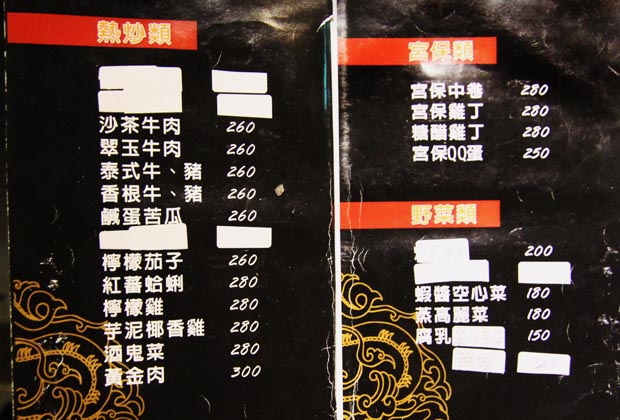 熱炒類
沙茶牛肉 260
翠玉牛肉 260
泰式牛、豬 260
香根牛、豬 260
鹹蛋苦瓜 260
檸檬茄子 260
紅蕃蛤蜊 280
檸檬雞 280
芋泥椰香雞 280
酒鬼菜 280
黃金肉 300
宮保類
宮保中卷 280
宮保雞丁 280
糖醋雞丁 280
宮保QQ蛋 250
野菜類
200
蝦醬空心菜 180
蒸高麗菜 180
腐乳 150